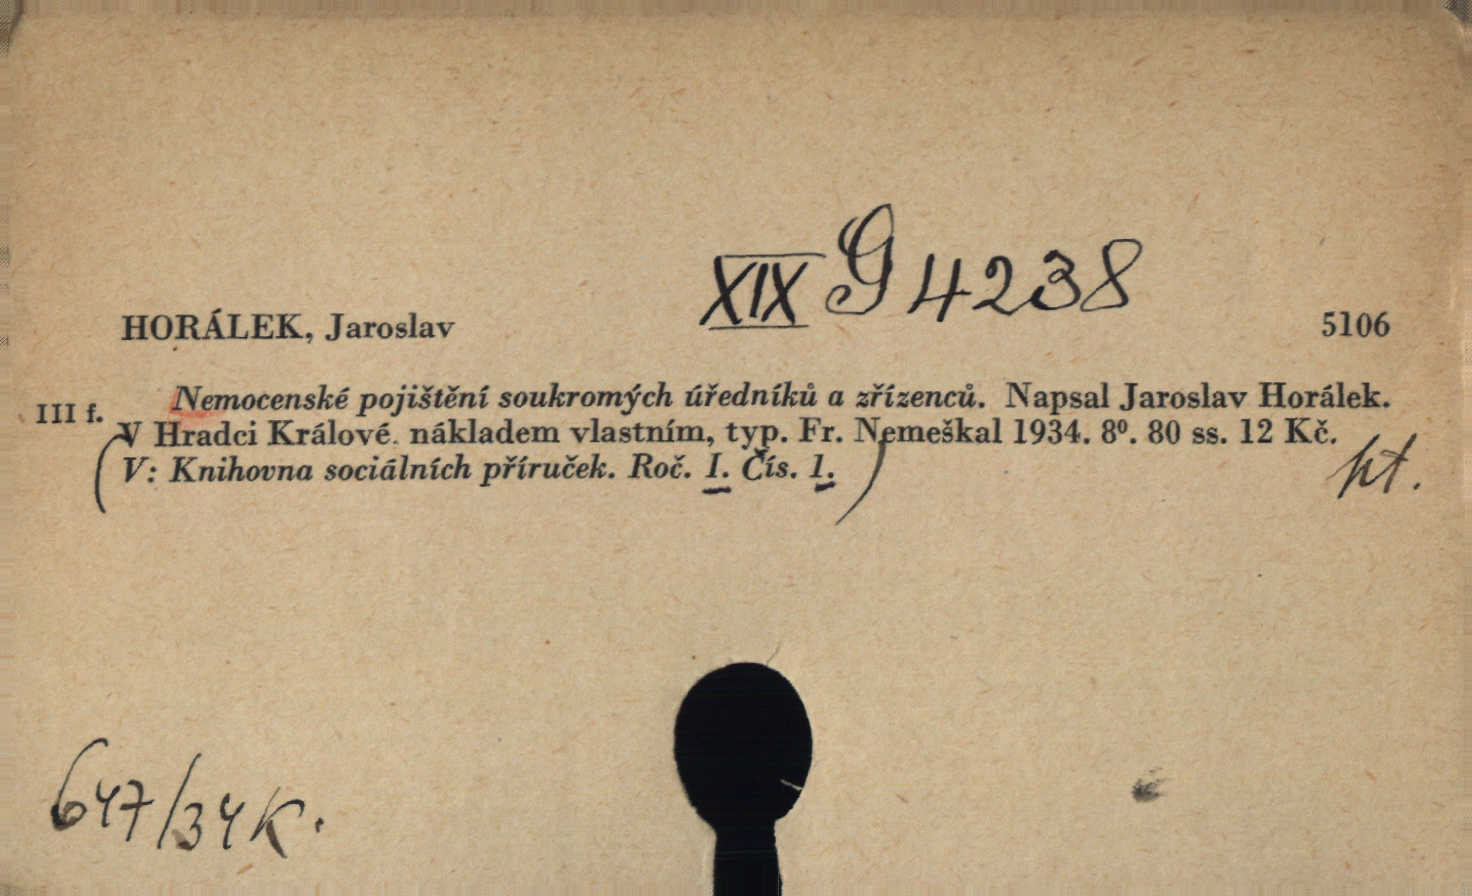 XIX G 4238
HORÁLEK, Jaroslav 5106
III f. Nemocenské pojištění soukromých úředníků a zřízenců. Napsal Jaroslav Horálek.
V Hradci Králové. nákladem vlastním, typ. Fr. Nemeškal 1934. 8⁰. 80 ss. 12 Kč.
(V: Knihovna sociálních příruček. Roč. I. Čís. 1.)
647/34 K.